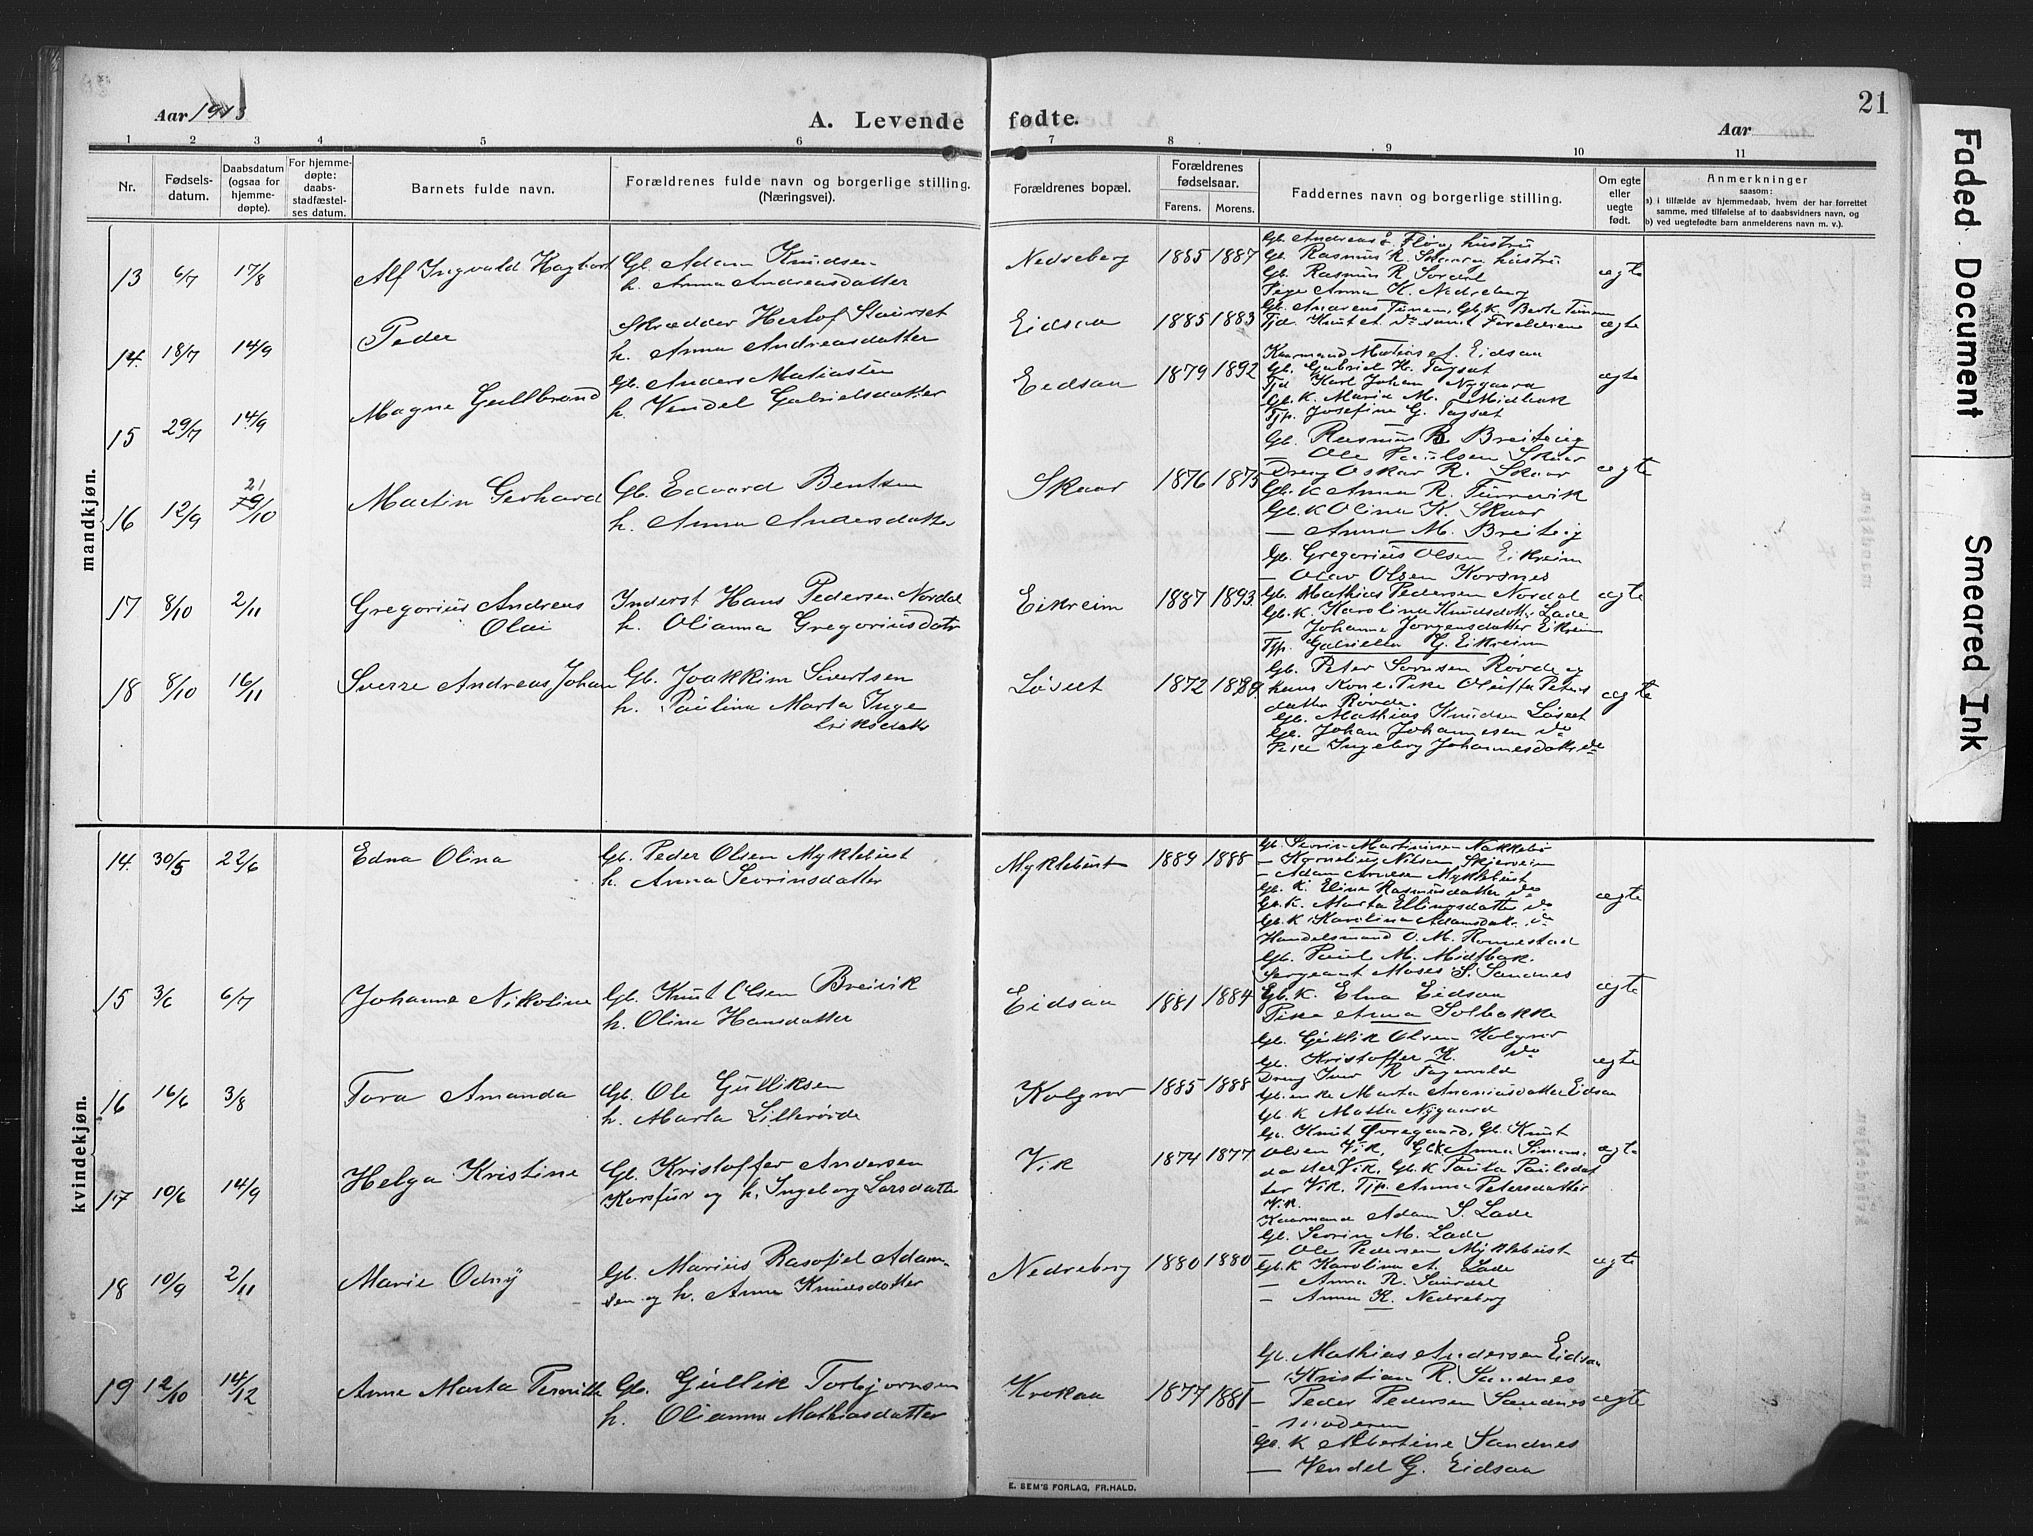 Aar 1913
A. Levende fødte.
Aar
21
1 2 3 4 5 6 7 8 9 10 11
Nr.
Fødsels-
datum.
Daabsdatum
(ogsaa for
hjemme-
døpte).
For hjemme-
døpte:
daabs-
stadfæstel-
ses datum.
Barnets fulde navn.
Forældrenes fulde navn og borgerlige stilling.
(Næringsvei).
Forældrenes bopæl.
Forældrenes
fødselsaar.
Farens. Morens.
Faddernes navn og borgerlige stilling.
Om egte
eller
uegte
født.
Anmerkninger
saasom:
a) i tilfælde av hjemmedaab, hvem der har forrettet
samme, med tilføielse af to daabsvidners navn, og
b) ved uegtefødte barn anmelderens navn m. v.).
mandkjøn.
13 6/7 17/8 Alf Ingvald Hagbart
Gb. Adam Knudsen
h. Anna Andreasdatter
Nedreberg 1885 1887
Gb. Rasmus R. Sørdal
Pige Anna K. Nedreberg
egte
14. 18/7 14/9 Peder
Skrædder Herlof
h. Anna Andreasdatter
Eidsaa 1885 1883
egte
15 29/7 14/9 Magne Gullbrand
Gb. Anders Matiassen
h. Vendel Gabrielsdatter
Eedsaa 1879 1892
Kaarmand Mathias A. Eidsaa
Gb. Gabriel H. Tagsæt
Tjd Karl Johan Nygaard
Gb. K. Marie M. Midtbak
Tjp. Josefine G. Tagsæt
egte
16 12/9 21/10 Martin Gerhard
Gb. Edvard Bentsen
h. Anna Andersdatter
Skaar 1876 1875
Gb. Rasmus B Breiteig
— Ole Paulsen Skaar
Dreng Oskar R. Skaar
Gb. K Anna R.
Gb. K Olina K. Skaar
— Anna M. Breiteig
egte
17 8/10 2/11 Gregorius Andreas
Olai
Inderst Hans Pedersen Nordal
h. Olianna Gregoriusdatr
Eikreim 1887 1893.
Gb. Gregorius Olsen Eikreim
— Olav Olsen Korsnes
Gb. Mathias Pedersen Nordal
Gb. K. Karolina Knudsdatr. Lade
— Johanne Jørgensdatter Eikreim
Tjp. Gabriella G. Eikreim
egte
18 8/10 16/11 Sverre Andreas Johan
Gb. Joakkim Sivertsen
h. Paulina Marta Inge
Eriksdatter
Løseet 1872 1879.
Gb. Peter Sørensen Rovde og
hans Kone. Pike Olufta Peters
datter Rovde.
Gb. Mathias Knudsen Løseet
Gb. Johan Johannesen do
Pike Ingeborg Johannesdatr. do
egte
kvindekjøn.
14. 30/5 22/6 Edna Olina
Gb. Peder Olsen Myklebust
h. Anna Severinsdatter
Myklebust 1889 1888
Gb. Severin Martinusen Nakkebø
— Kornelius Nilsen Skjerveim
— Adam Arnesen Myklebust
Gb. K. Eline Rasmusdatter do
Gb. K. Marta Ellingsdatter do
Gb. K Karolina Adamsdatr. do
egte
15 3/6 6/7 Johanne Nikoline
Gb. Knut Olsen Breivik
h. Oline Hansdatter
Eidsaa 1881 1884
Handelsmand O. M. Rønnestad
Gb. Paul M. Midtbak.
Sergeant Moses S. Sandnes
Gb. K. Elna Eidsaa
Pike Anna Solbakke
egte
16 16/6 3/8 Tora Amanda
Gb. Ole Gulliksen
h. Marta Lillerovde
Kolgrov 1885 1888
Gb. Gullik Olsen Kolgrov
Gb. Kristoffer K. do
Dreng Iver R Fagervold
Gb. enke Marta Ananiasdatter Eidsaa
Gb. K Matta Nygaard
egte
17 10/6 14/9 Helga Kristine
Gb. Kristoffer Andersen
Korsfur og h. Ingeborg Larsdatter
Vik 1874 1877
Gb. Knut Øvregaard, Gb. Knut
Olsen Vik, GbK Anna Simons
datter Vik, Gb. K Paula Paulsdat
ter Vik. Tjp. Anna Petersdatter
Vik.
egte
18 10/9 2/11 Marie Odny
Gb. Marius Rasofiel Adam-
sen og h. Anna Knudsdatter
Nedreberg 1880 1880
Kaarmand Adam S. Lade
Gb. Severin M. Lade
— Ole Pedersen Myklebust
Gb. K Karolina A. Lade
— Anna R. Saurdal
— Anna K. Nedreberg
egte
19 12/10 14/12 Anna Marta Pernille
Gb. Gullik Torbjørnsen
h. Olianna Mathiasdatter
Krokaa 1877 1881
Gb. Mathias Andersen Eidsaa
— Kristian R. Sandnes
— Peder Pedersen Sandnes
— Moderen
Gb. K Albertine Sandnes
— Vendel G. Eidsaa
egte
E. SEM'S FORLAG, FR.HALD.
Faded Document
Smeared Ink